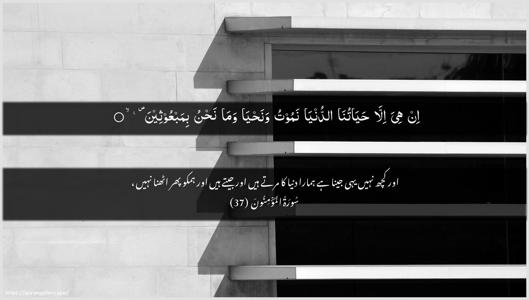 اِنْ هِیَ اِلَّا حَیَاتُنَا الدُّنْیَا نَمُوْتُ وَنَحْیَا وَمَا نَحْنُ بِمَبْعُوْثِیْنَ
اور کچھ نہیں یہی جینا ہے ہمارا دنیا کا مرتے ہیں اور جیتے ہیں اور ہمکو پھر اٹھنا نہیں،
سُوْرَۃُ الْمُؤْمِنُوْنَ (37)